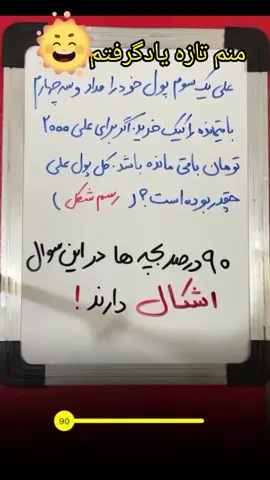 منم تازه یادگرفتم
علی یک سوم پول خود را مداد و سه چهارم
باقیمانده را کیک خرید. اگر برای علی ۲۰۰۰
تومان باقی مانده باشد. کل پول علی
چقدر بوده است؟ (رسم شکل)
۹۰ درصد بچه ها در این سوال
اشکال دارند!
90